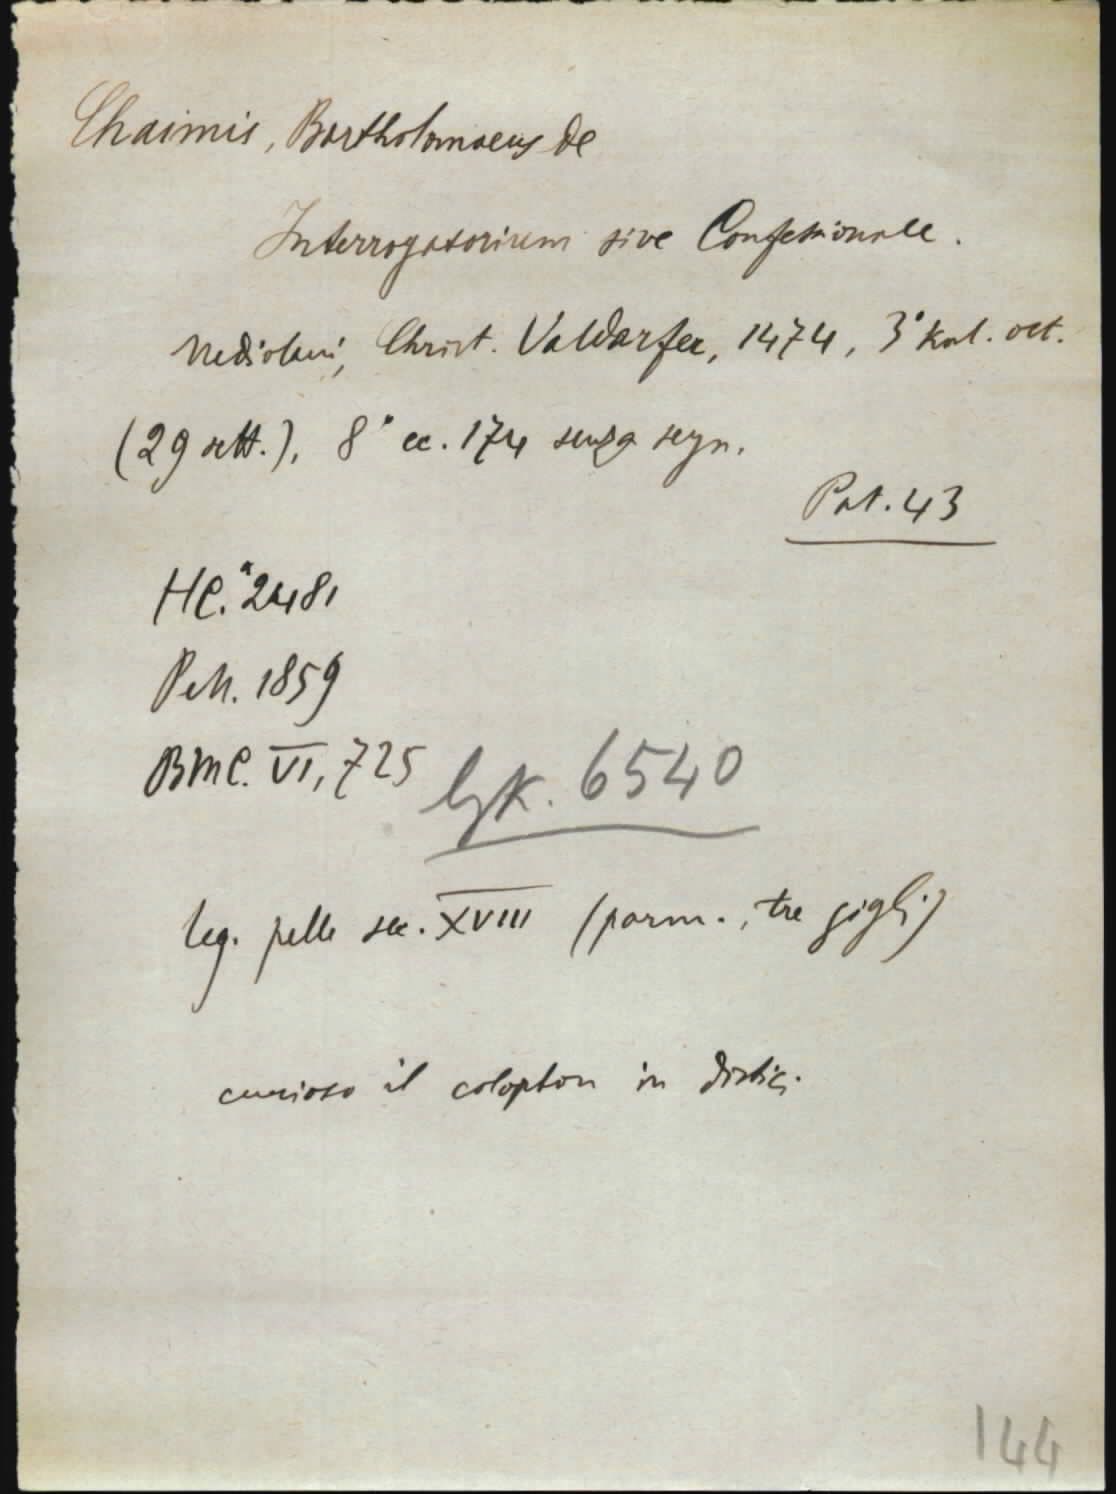 Chaimis, Bartholomaeus de
Interrogatorium sive Confessionale.
Mediolani, Christ. Valdarfer, 1474, 3° Kal. oct.
(29 sett.), 8° cc. 174 senza segn.
Pat. 43
HC.* 2481
Pell. 1859
BMC. VI, 725
Gk. 6540
leg. pelle sec. XVIII (parm., tre gigli)
curioso il colophon in distici.
144